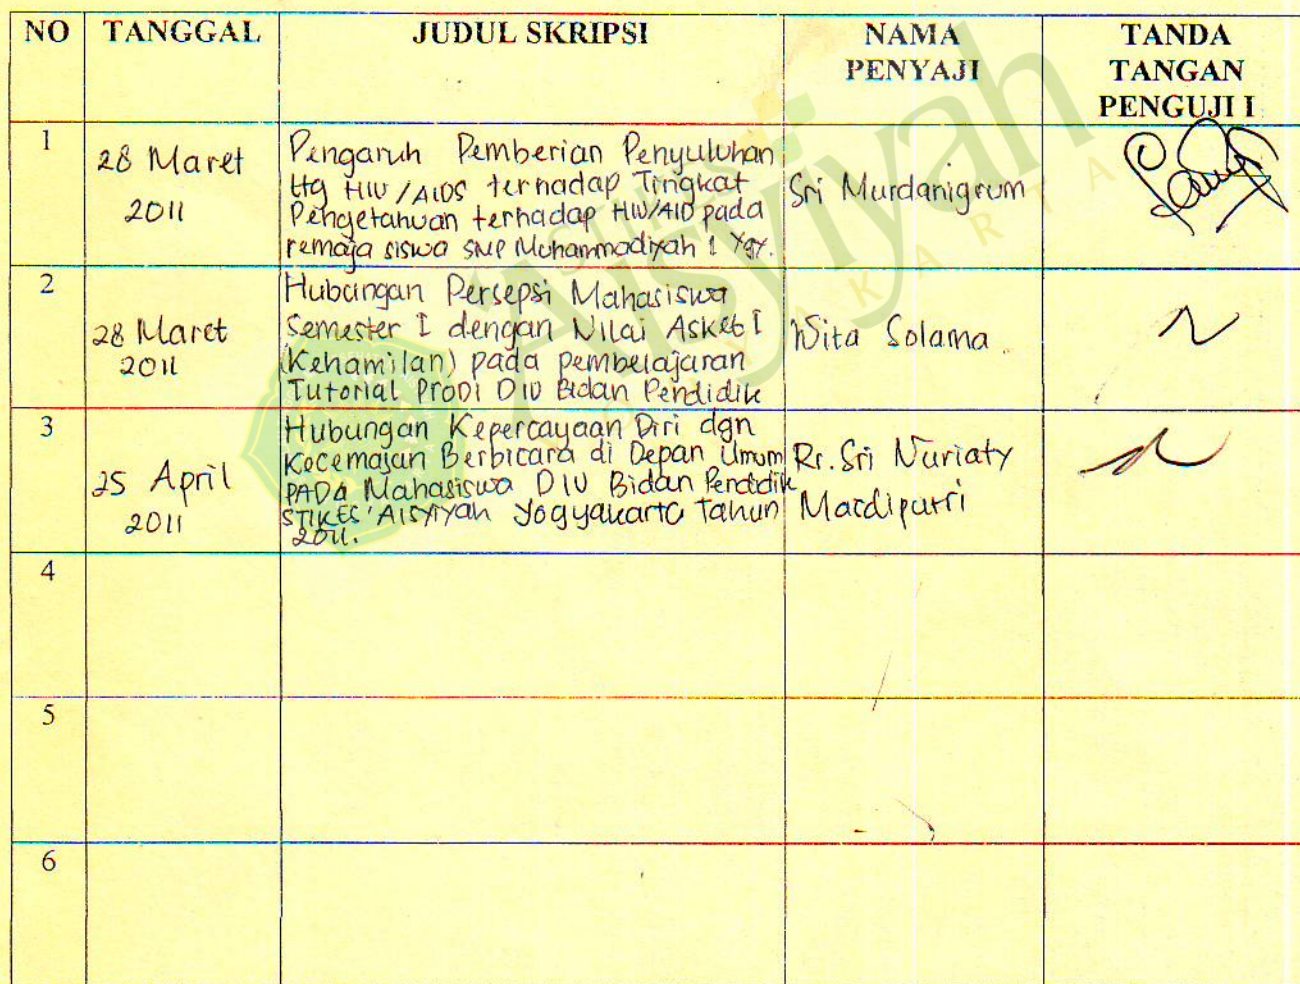 NO TANGGAL JUDUL SKRIPSI NAMA PENYAJI TANDA TANGAN PENGUJI I
1
28 Maret
2011
Pengaruh Pemberian Penyuluhan
ttg HIV/AIDS terhadap Tingkat
Pengetahuan terhadap HIV/AID pada
remaja siswa SMP Muhammadiyah 1 Ygy.
Sri Murdanigrum
2
28 Maret
2011
Hubungan Persepsi Mahasiswa
Semester I dengan Nilai Askeb I
(Kehamilan) pada pembelajaran
Tutorial Prodi DIV Bidan Pendidik
Wita Solama
3
25 April
2011
Hubungan Kepercayaan Diri dgn
Kecemasan Berbicara di Depan Umum
PADA Mahasiswa DIV Bidan Pendidik
STIKES 'AISYIYAH Yogyakarta Tahun
2011.
Rr. Sri Nuriaty
Mardiputri
4
5
6
Aisyiyah